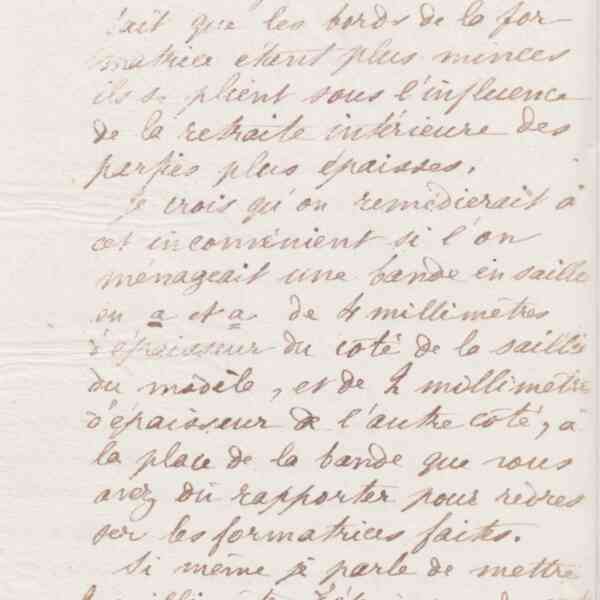 fait que les bords de la for-
matrice étant plus minces
ils se plient sous l'influence
de la retraite intérieure des
parties plus épaisses.
Je crois qu'on remédierait à
cet inconvénient si l'on
ménageait une bande en saillie
en a et a de 4 millimètres
d'épaisseur du coté de la saillie
du modèle, et de 2 millimètre
d'épaisseur de l'autre coté, à
la place de la bande que vous
avez dû rapporter pour redres
ser les formatrices faites.
Si même je parle de mettre